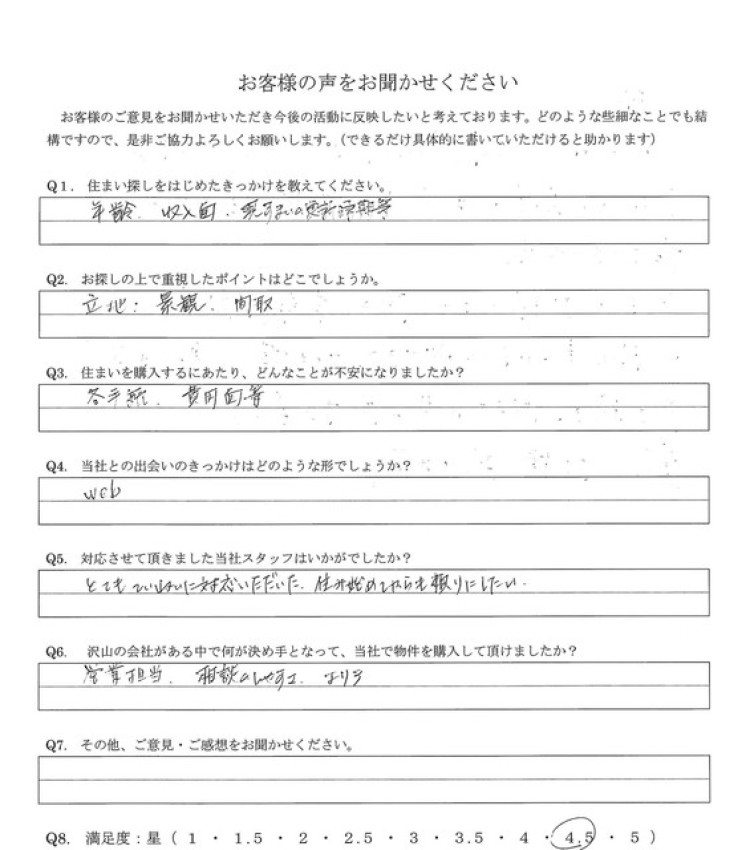 お客様の声をお聞かせください
お客様のご意見をお聞かせいただき今後の活動に反映したいと考えております。どのような些細なことでも結
構ですので、是非ご協力よろしくお願いします。（できるだけ具体的に書いていただけると助かります）
Q1. 住まい探しをはじめたきっかけを教えてください。
年齢、収入面、現住まいの更新時期等
Q2. お探しの上で重視したポイントはどこでしょうか。
立地・景観・間取
Q3. 住まいを購入するにあたり、どんなことが不安になりましたか？
各手続、費用面等
Q4. 当社との出会いのきっかけはどのような形でしょうか？
web
Q5. 対応させて頂きました当社スタッフはいかがでしたか？
とてもていねいに対応いただいた。住み始めてからも頼りにしたい。
Q6. 沢山の会社がある中で何が決め手となって、当社で物件を購入して頂けましたか？
営業担当、相談のしやすさ、
Q7. その他、ご意見・ご感想をお聞かせください。
Q8. 満足度：星（ 1 ・ 1.5 ・ 2 ・ 2.5 ・ 3 ・ 3.5 ・ 4 ・ 4.5 ・ 5 ）